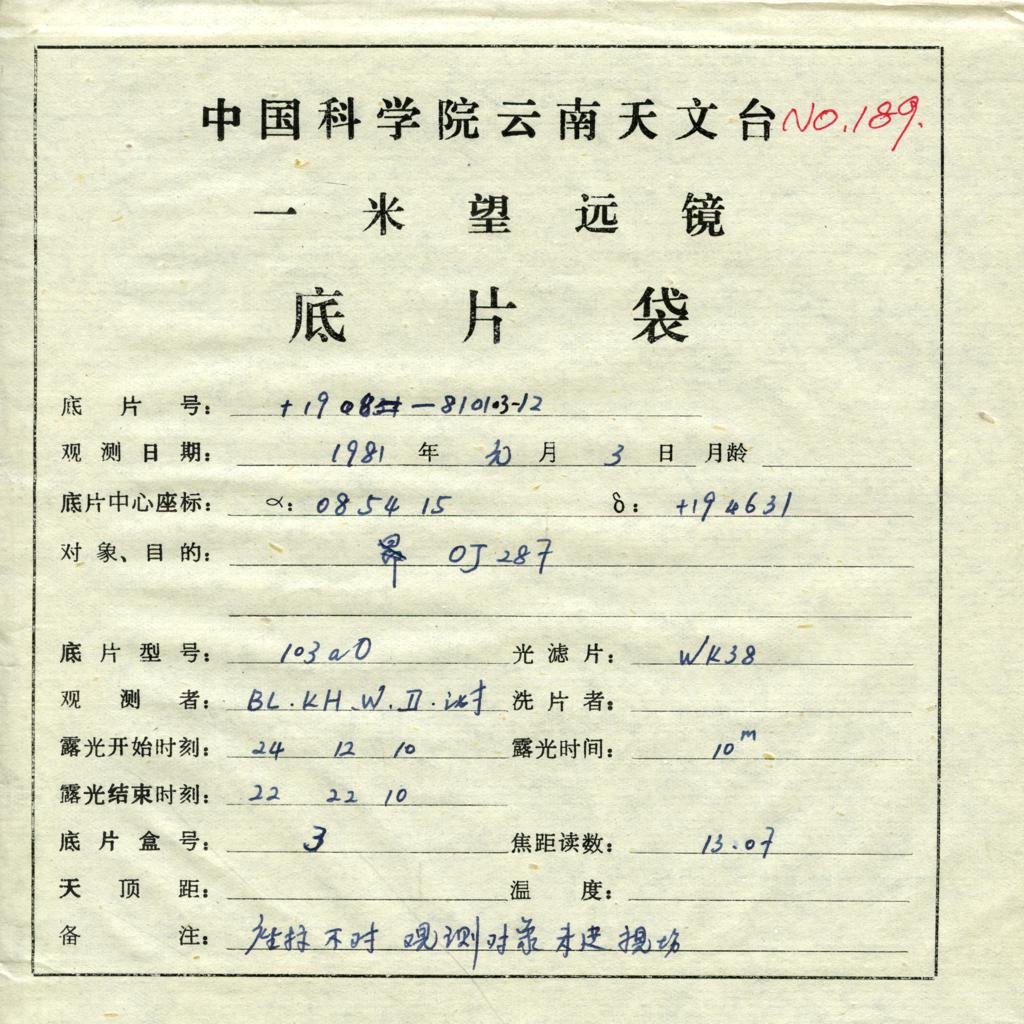 中国科学院云南天文台 NO.189.
一米望远镜
底片袋
底片号: +19 08 —810103-12
观测日期: 1981 年 元 月 3 日 月龄
底片中心座标: α: 08 54 15 δ: +19 46 31
对象、目的: OJ 287
底片型号: 103aO 光滤片: WK38
观测者: BL.KH.W.II. 洗片者:
露光开始时刻: 24 12 10 露光时间: 10m
露光结束时刻: 22 22 10
底片盒号: 3 焦距读数: 13.07
天顶距: 温度:
备注: 座标不对 观测对象未进视场